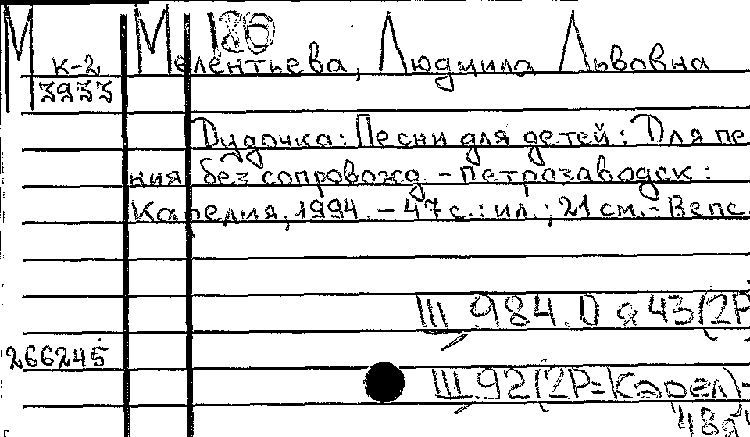 М 180
К-2 Мелентьева, Людмила Львовна
3933
Дудочка: Песни для детей: Для пе
ния без сопровожд. - Петрозаводск:
Карелия, 1994. - 47 с.: ил.; 21 см. - Вепс.
Щ 984.0 я 43(2Р
266245
Щ 92(2Р=Карел)-
48я